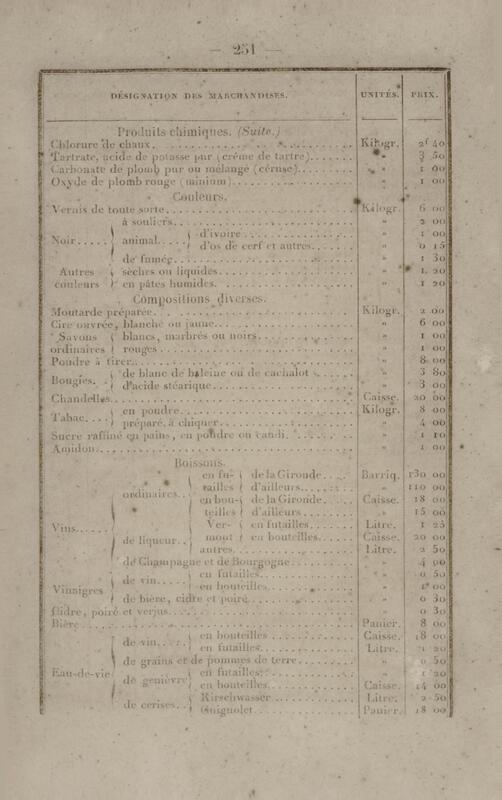 — 251 —
DÉSIGNATION DES MARCHANDISES. UNITÉS. PRIX.
Produits chimiques. (Suite.)
Chlorure de chaux. Kilogr. 2f 40
Tartrate, acide de potasse pur (crème de tartre) " 3 50
Carbonate de plomb pur ou mélangé (céruse) " 1 00
Oxyde de plomb rouge (minium) " 1 00
Couleurs.
Vernis de toute sorte Kilogr. 6 00
à souliers " 2 00
Noir animal d'ivoire " 1 00
d'os de cerf et autres " 0 15
de fumée " 1 30
Autres sèches ou liquides " 1 20
couleurs en pâtes humides. " 1 20
Compositions diverses.
Moutarde préparée Kilogr. 2 00
Cire ouvrée, blanche ou jaune " 6 00
Savons blancs, marbrés ou noirs " 1 00
ordinaires rouges " 1 00
Poudre à tirer " 8 00
Bougies. de blanc de baleine ou de cachalot " 3 80
d'acide stéarique " 3 00
Chandelles Caisse. 20 00
Tabac en poudre Kilogr. 8 00
préparé à chiquer " 4 00
Sucre raffiné en pains, en poudre ou candi. " 1 10
Amidon " 1 00
Boissons.
en fu- de la Gironde Barriq. 130 00
tailles d'ailleurs " 110 00
ordinaires en bou- de la Gironde Caisse. 18 00
teilles d'ailleurs " 15 00
Vins Ver- en futailles Litre. 1 25
de liqueur mout en bouteilles Caisse. 20 00
autres Litre. 2 50
de Champagne et de Bourgogne " 4 00
de vin en futailles " 0 50
Vinaigres en bouteilles " 1 00
de bière, cidre et poiré " 0 30
Cidre, poiré et verjus " 0 30
Bière Panier. 8 00
de vin en bouteilles Caisse. 18 00
en futailles Litre. 20
de grains et de pommes de terre " 0 50
Eau-de-vie de genièvre en futailles " 1 20
en bouteilles Caisse. 14 00
de cerises Kirschwasser Litre. 2 50
Guignolet Panier. 18 00